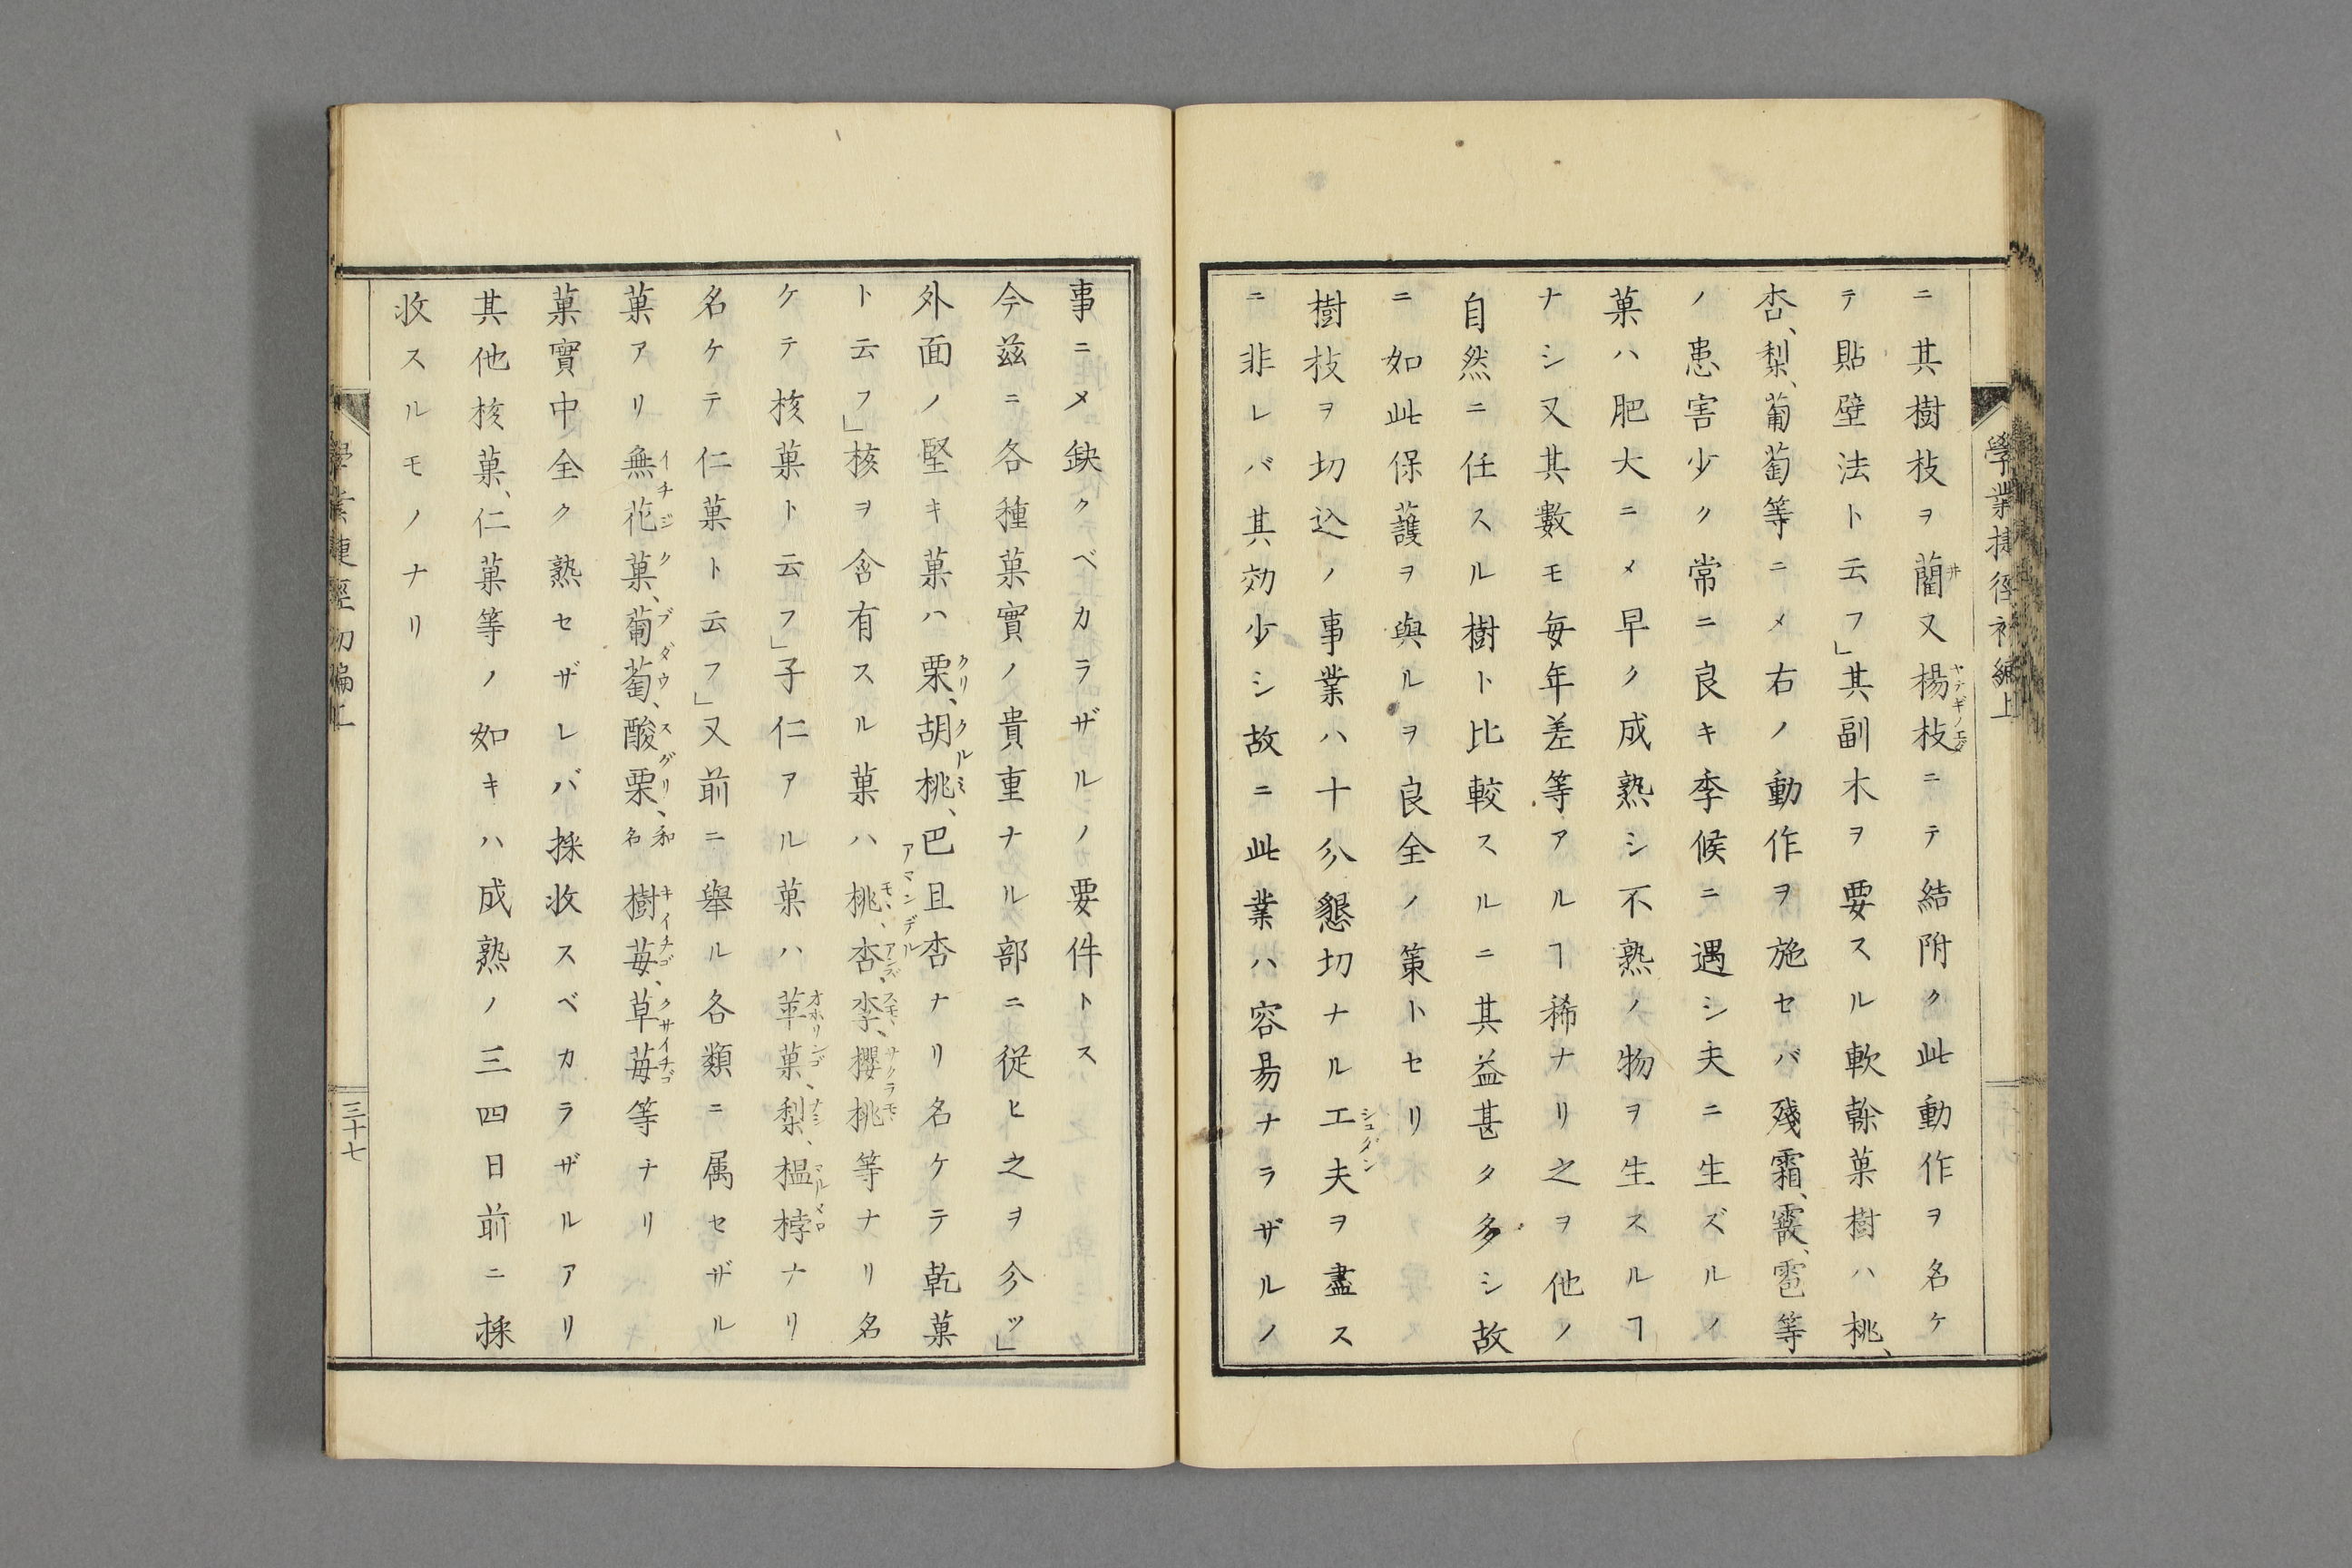 ニ其樹枝ヲ藺又楊枝ニテ結附ク此動作ヲ名ケ
テ貼壁法ト云フ」其副木ヲ要スル軟榦菓樹ハ桃、
杏、梨、葡萄等ニメ右ノ動作ヲ施セバ殘霜、霰、雹等
ノ患害少ク常ニ良キ季候ニ遇シ夫ニ生ズルノ
菓ハ肥大ニメ早ク成熟シ不熟ノ物ヲ生スルヿ
ナシ又其數モ毎年差等アルヿ稀ナリ之ヲ他ノ
自然ニ任スル樹ト比較スルニ其益甚タ多シ故
ニ如此保護ヲ與ルヲ良全ノ策トセリ
樹枝ヲ切込ノ事業ハ十分懇切ナル工夫ヲ盡ス
ニ非レバ其効少シ故ニ此業ハ容易ナラザルノ
事ニメ缺クベカラザルノ要件トス
今茲ニ各種菓實ノ貴重ナル部ニ従ヒ之ヲ分ツ」
外面ノ堅キ菓ハ栗、胡桃、巴旦杏ナリ名ケテ乾菓
ト云フ」核ヲ含有スル菓ハ桃、杏、李、櫻桃等ナリ名
ケテ核菓ト云フ」子仁アル菓ハ苹菓、梨、榲桲ナリ
名ケテ仁菓ト云フ」又前ニ舉ル各類ニ属セザル
菓アリ無花菓、葡萄、酸栗、和名樹苺、草苺等ナリ
菓實中全ク熟セザレバ採收スベカラザルアリ
其他核菓、仁菓等ノ如キハ成熟ノ三四日前ニ採
收スルモノナリ
三十七